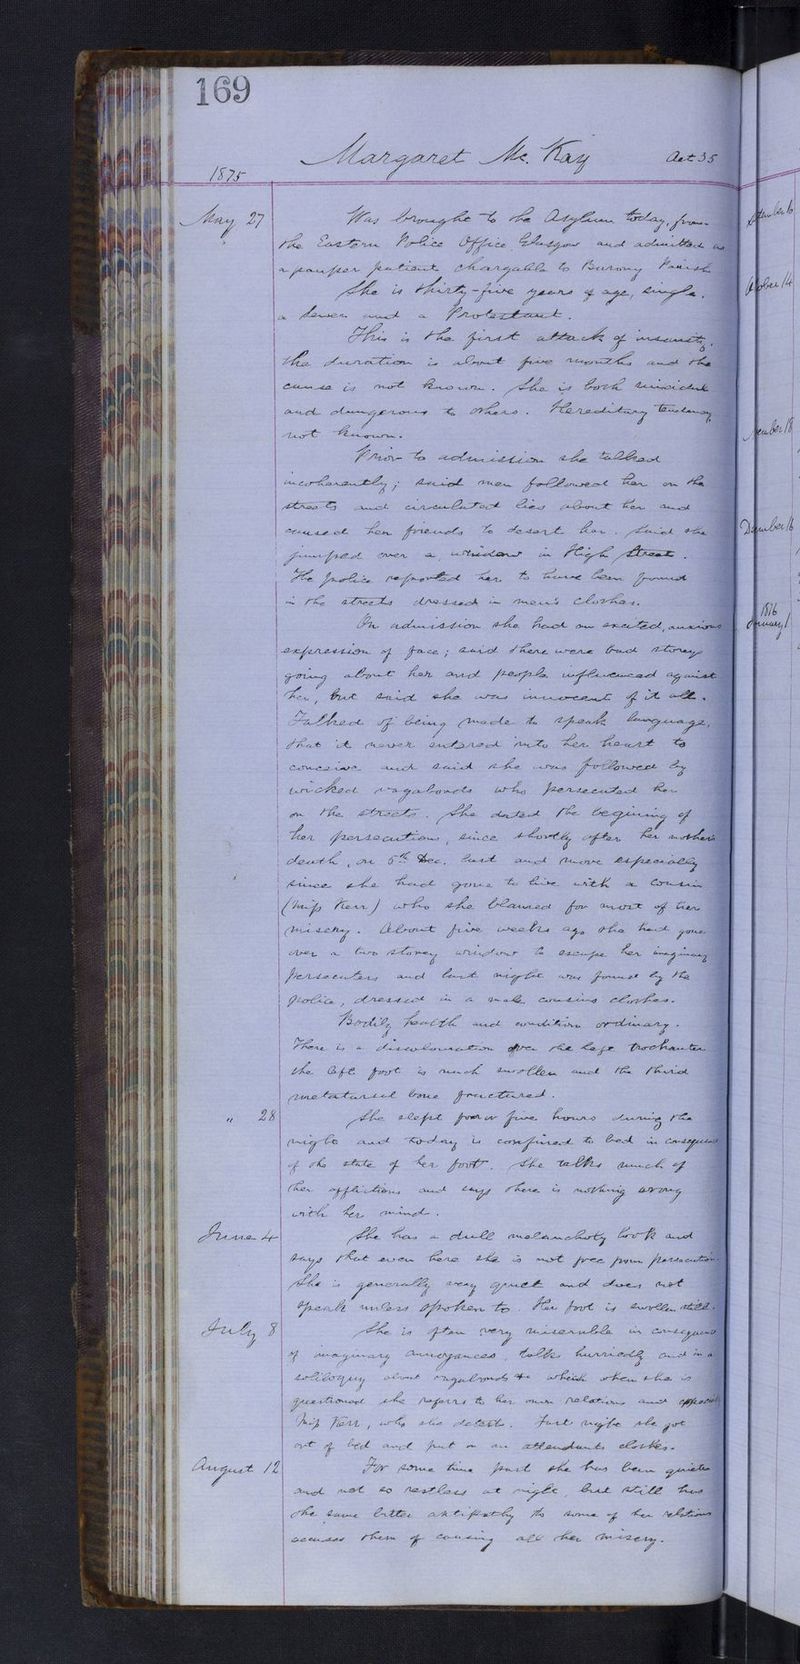 169
Margaret Mc. Kay Aet 35
1875
May 27 Was brought to the Asylum today, from
the Eastern Police Office Glasgow and admitted as
a pauper patient chargable to Barony Parish
She is thirty-five years of age, single,
a Sewer and a Protestant.
This is the first attack of insanity,
the duration is about five months and the
cause is not known. She is both suicidal
and dangerous to others. Hereditary tendency
not known.
Prior to admission she talked
incoherantly; said men followed her on the
streets and circulated lies about her and
caused her friends to desert her. Said she
jumped over a window in High Street.
The police reported her to have been found
in the streets dressed in men's clothes.
On admission she had an excited, anxious
expression of face; said there were bad storeys
going about her and people influenced against
her, but said she was innocent of it all.
Talked of being made to speak language,
that it never entered into her heart to
conceive and said she was followed by
wicked vagabonds who persecuted her
on the streets. She dated the begining of
her persecution, since shortly after her mother's
death, on 5th Dec. last and more especially
since she had gone to live with a cousin
(Miss Kerr) who she blamed for most of her
misery. About five weeks ago she had gone
over a two storey window to escape her imaginary
persecuters and last night was found by the
police, dressed in a male cousins clothes.
Bodily health and condition ordinary.
There is a discolouration over the left trochanter
the left foot is much swollen and the third
metatarsal bone fractured.
" 28 She slept four or five hours during the
night and today is confined to bed in consequence
of the state of her foot. She talks much of
her afflictions and says there is nothing wrong
with her mind.
June 4 She has a dull melancholy look and
says that even here she is not free from persecution.
She is generally very quiet and does not
speak unless spoken to. Her foot is swollen still.
July 8 She is often very miserable in consequence
of imaginary annoyances, talks hurriedly and in a
soliloquy about vagabonds &c which when she is
questioned she refers to her own relations and especially
Miss Kerr, who she detests. Last night she got
out of bed and put on an attendants clothes.
August 12 For some time past she has been quieter
and not so restless at night, but still has
the same bitter antipathy to some of her relations
accuses them of causing all her misery.
October 14
December 16
1876
January 1